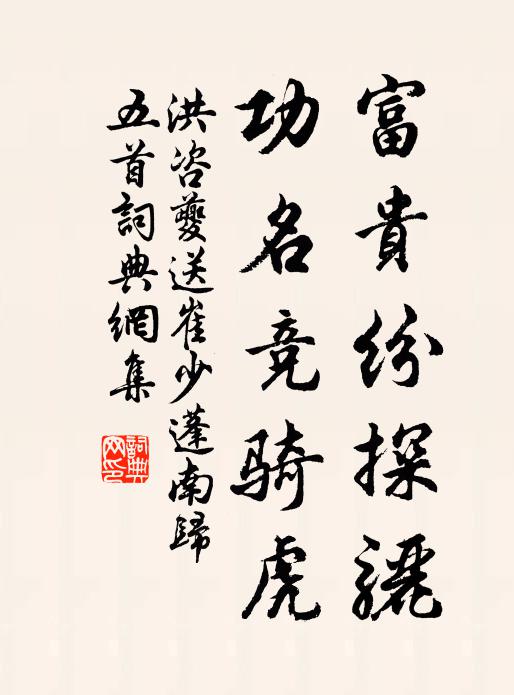 富貴紛探驪
功名竞騎虎
洪咨夔送崔少蓬南歸
五首詞典網集
詞典网印